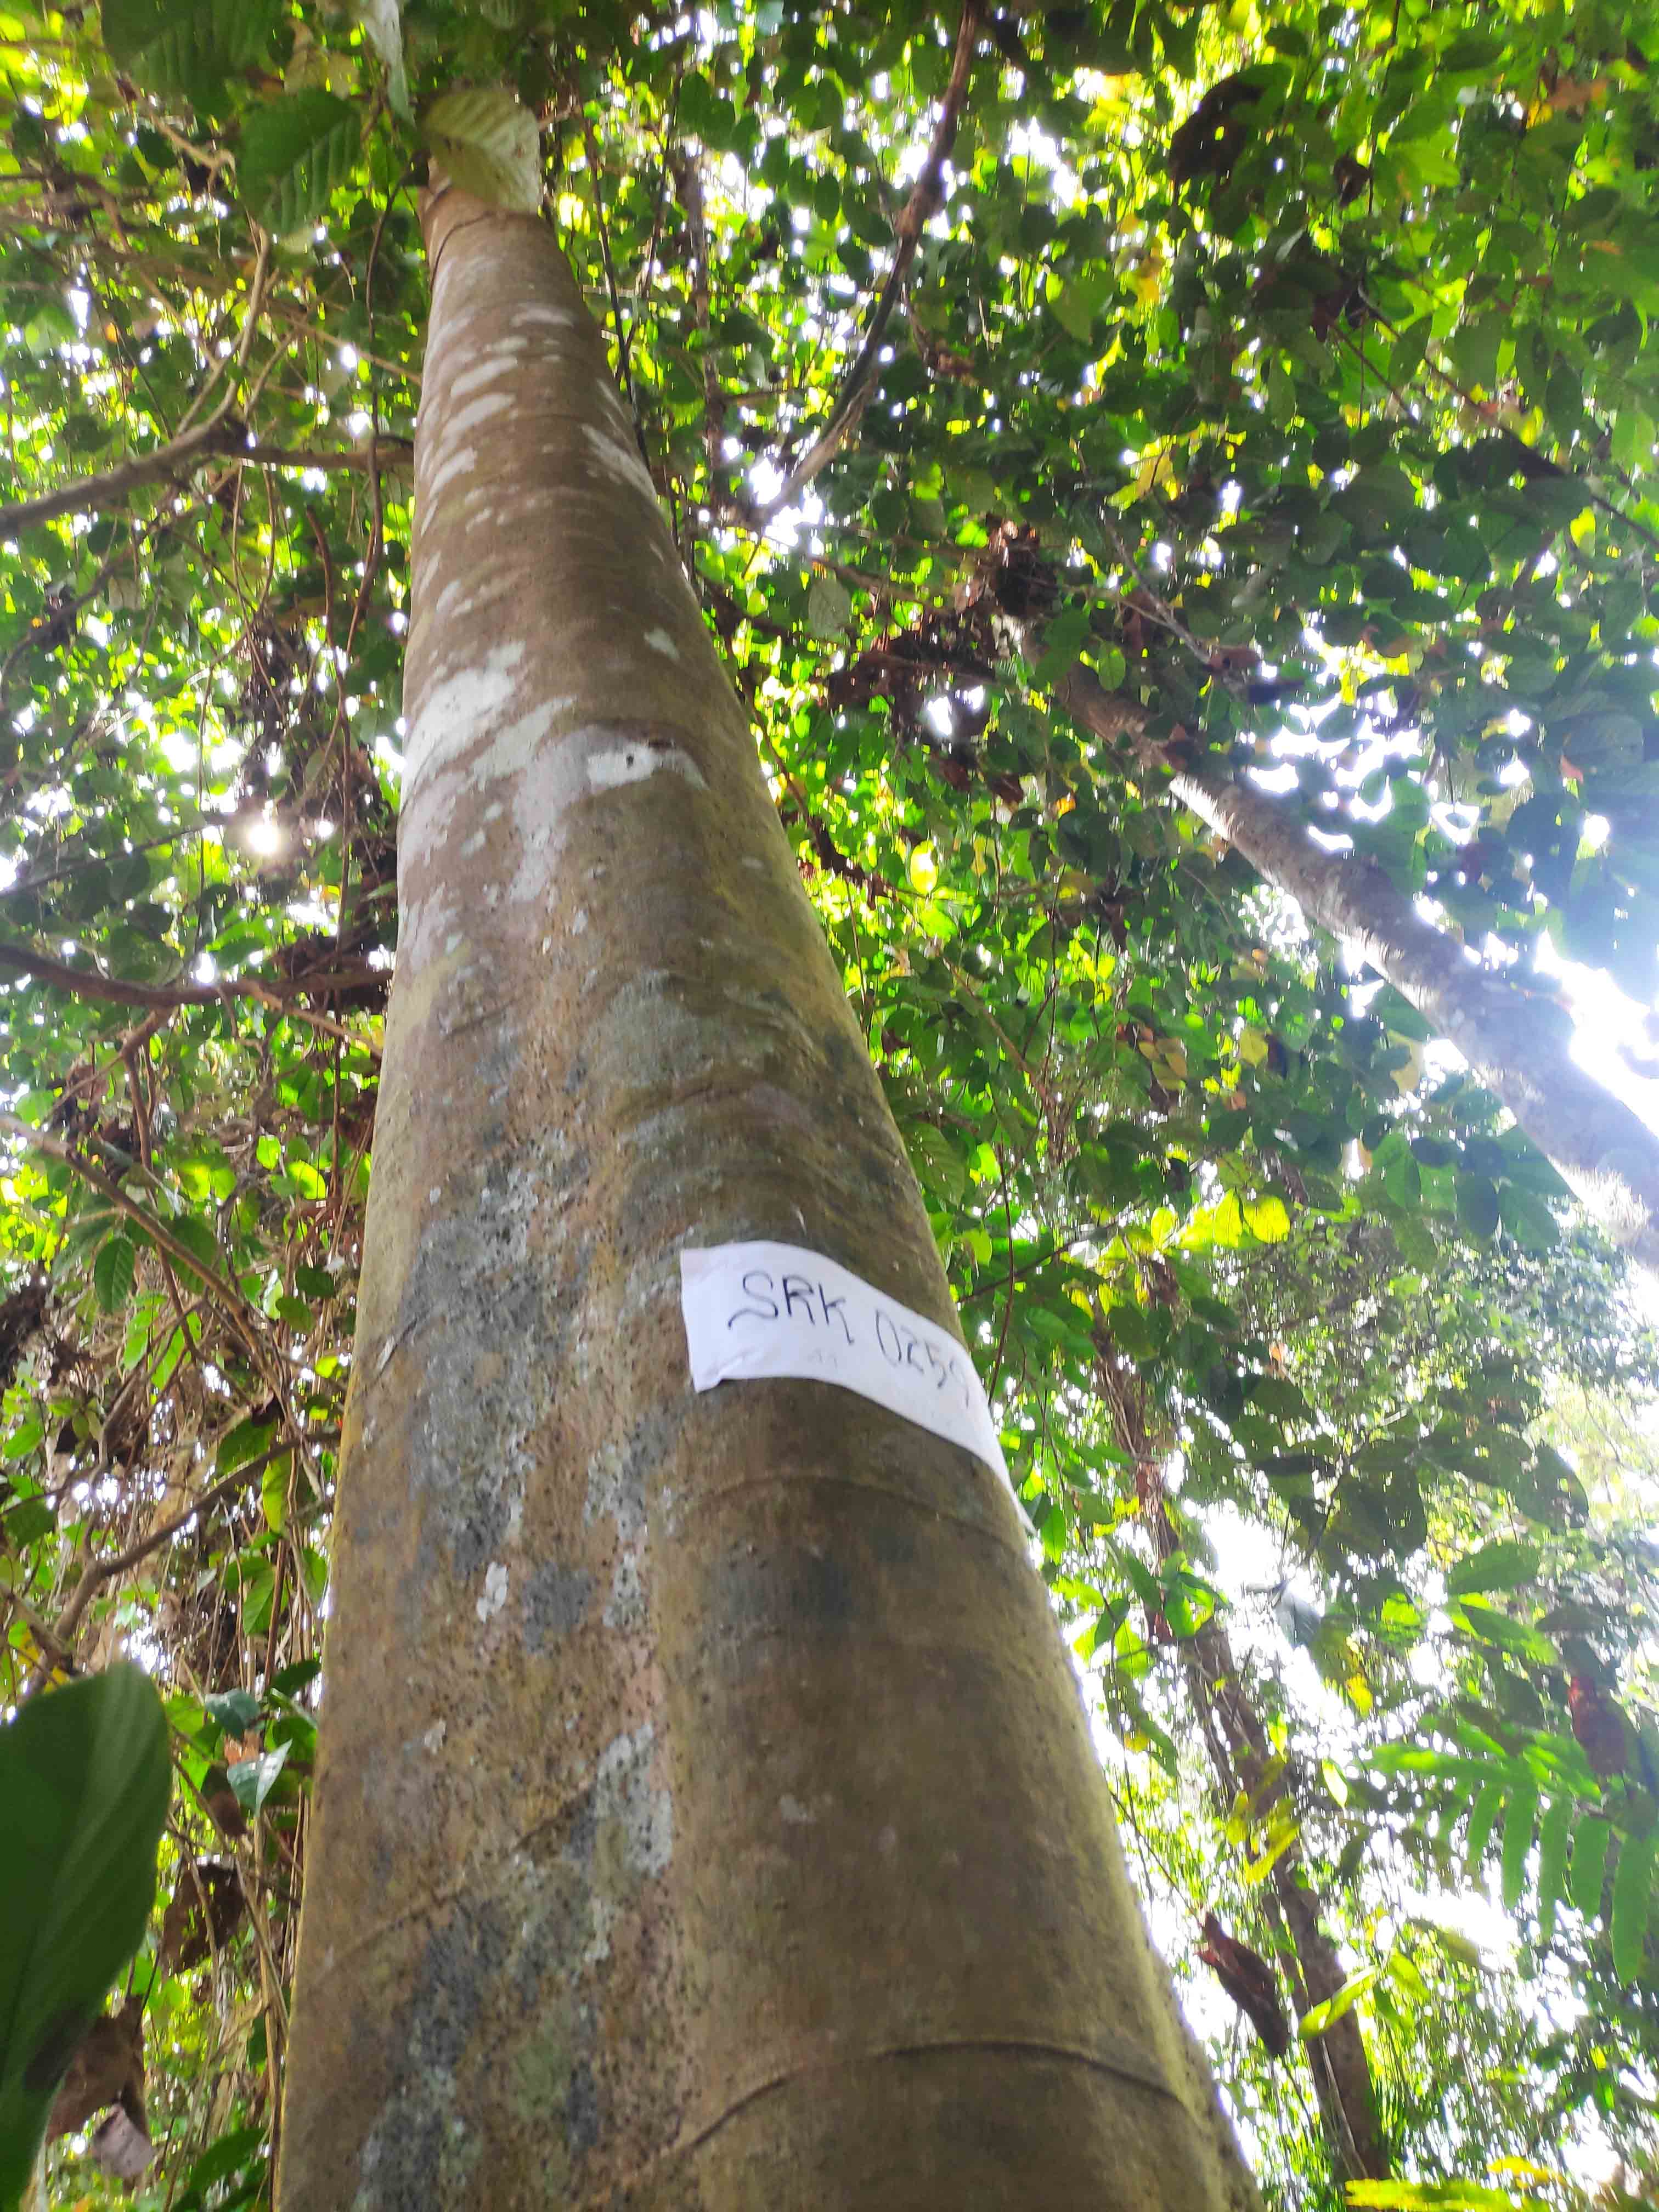 SRK 0259